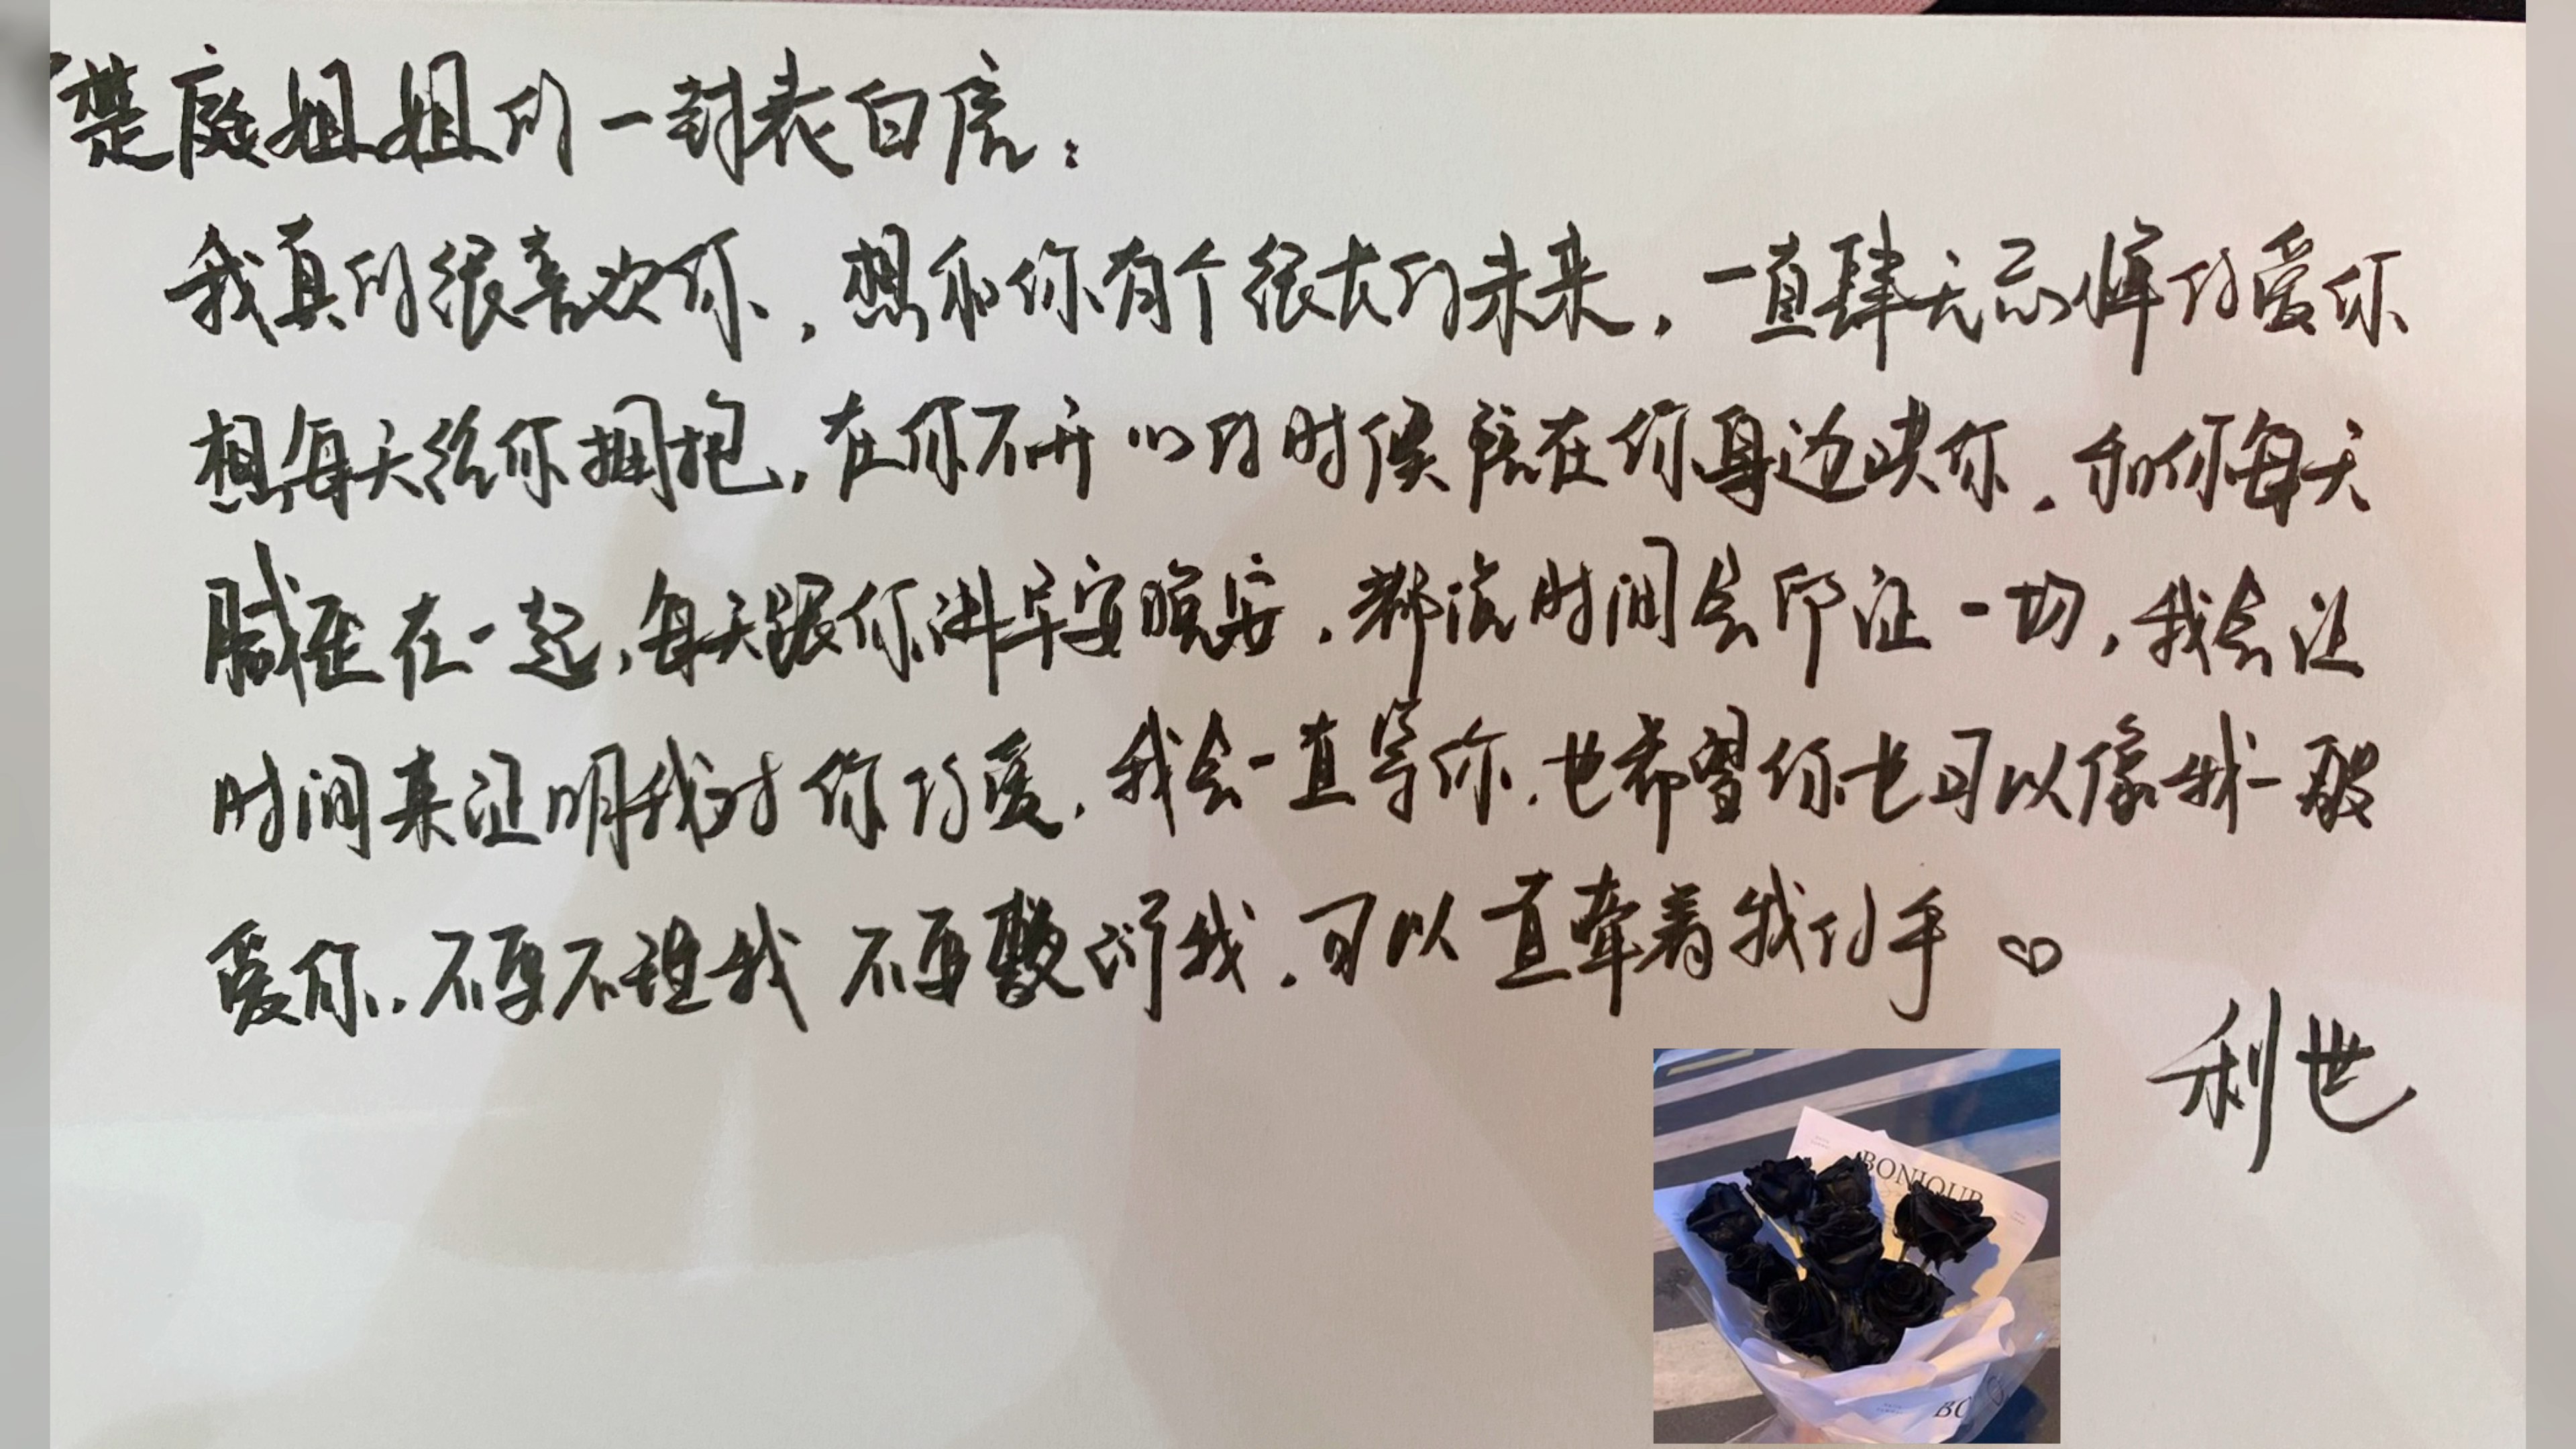 楚庭姐姐的一封表白信：
我真的很喜欢你，想和你有个很长的未来，一直肆无忌惮的爱你
想每天给你拥抱，在你不开心的时候陪在你身边哄你，和你每天
腻歪在一起，每天跟你讲早安晚安，都说时间会印证一切，我会让
时间来证明我对你的爱，我会一直等你，也希望你也可以像我一般
爱你，不要不理我 不要敷衍我，可以一直牵着我的手♡
利世
BONJOUR
BO